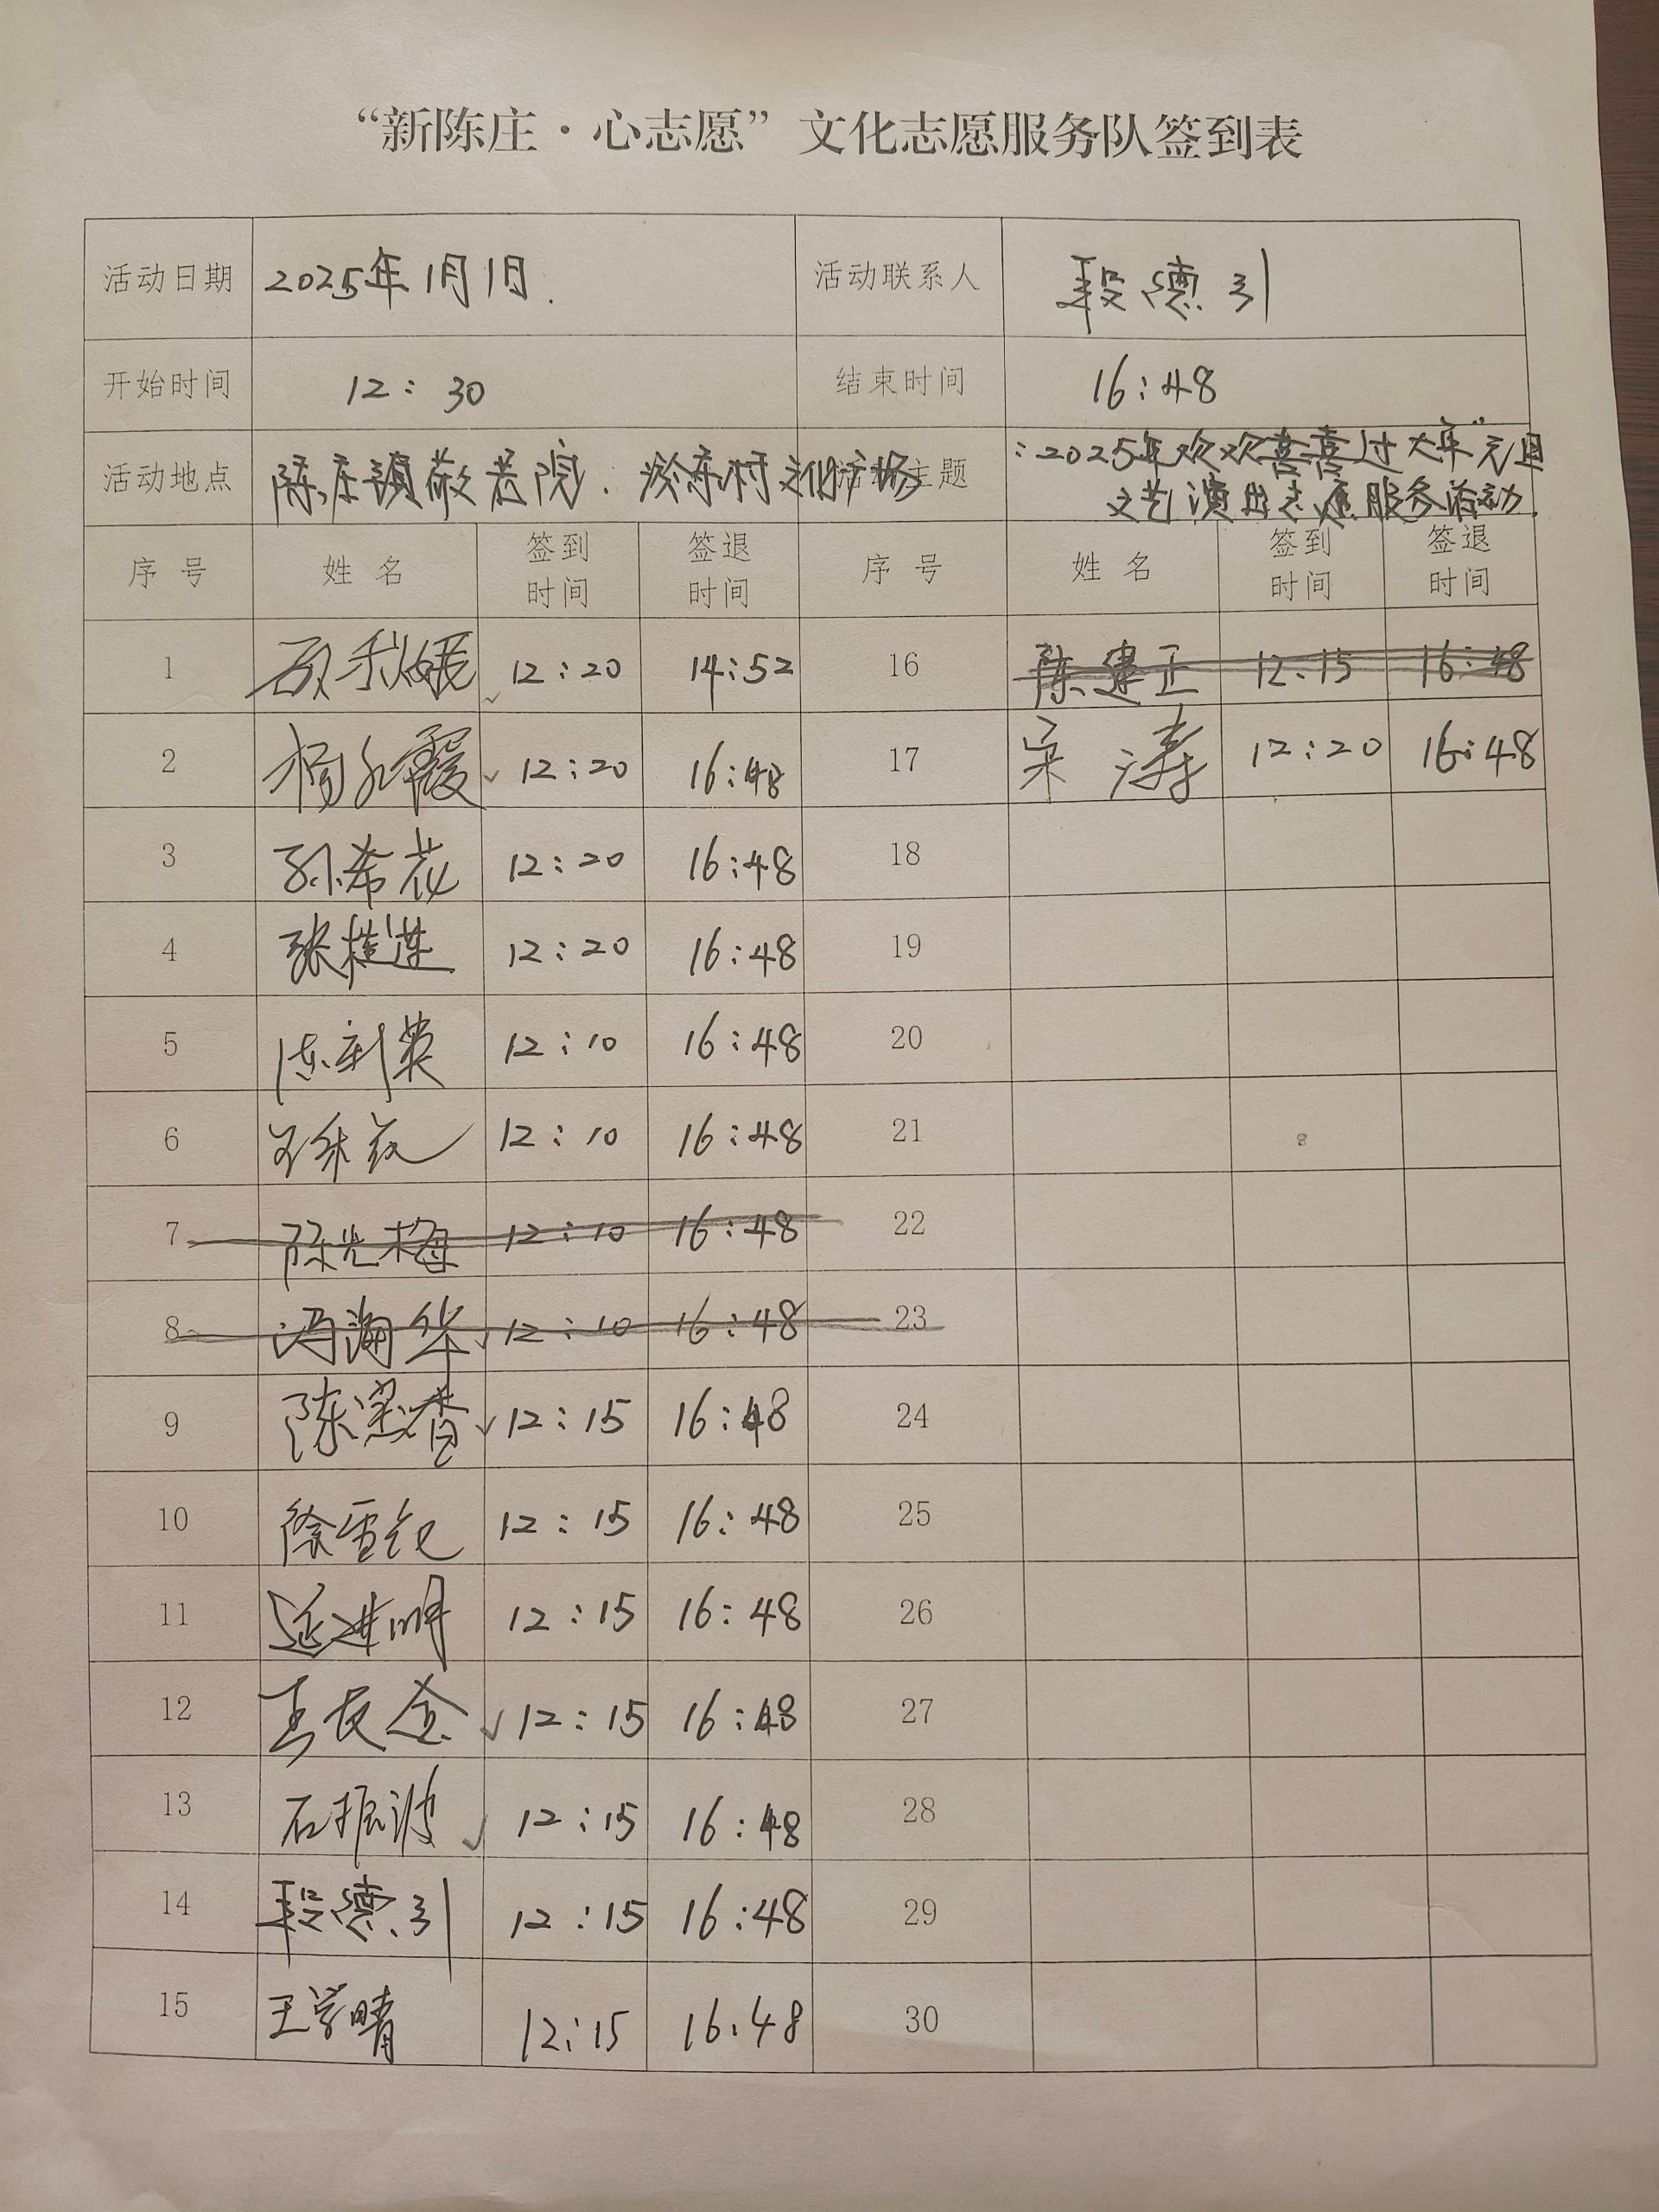 “新陈庄·心志愿”文化志愿服务队签到表
活动日期 2025年1月1日. 活动联系人 段德引
开始时间 12:30 结束时间 16:48
活动地点 陈庄镇敬老院. 东村文化广场 主题 :2025年欢欢喜喜过大年"元旦
文艺演出志愿服务活动.
序号 姓名 签到时间 签退时间 序号 姓名 签到时间 签退时间
1 12:20 14:52 16 陈建正 12:15 16:48
2 杨红霞 12:20 16:48 17 宋涛 12:20 16:48
3 孙希花 12:20 16:48 18
4 张桂莲 12:20 16:48 19
5 陈利英 12:10 16:48 20
6 12:10 16:48 21
7 陈光梅 12:10 16:48 22
8 冯海华 12:10 16:48 23
9 陈宪香 12:15 16:48 24
10 徐雪 12:15 16:48 25
11 延进明 12:15 16:48 26
12 王长金 12:15 16:48 27
13 石振波 12:15 16:48 28
14 段德引 12:15 16:48 29
15 王学晴 12:15 16:48 30